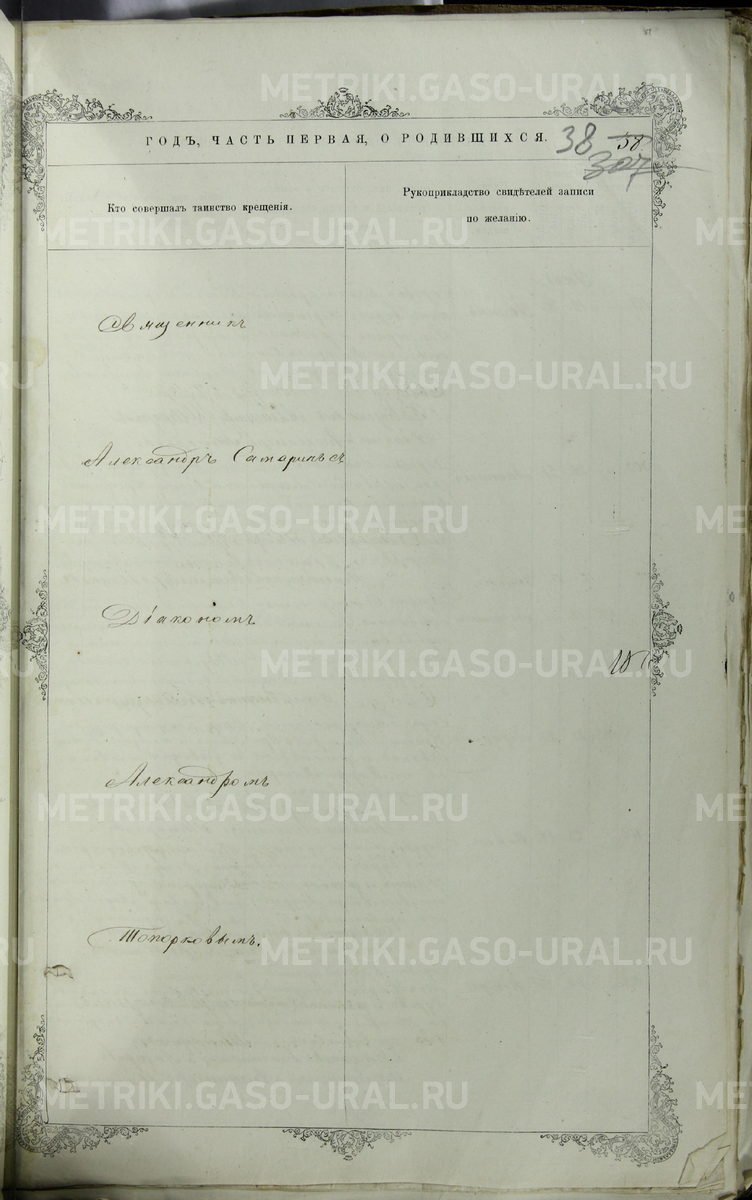 METRIKI.GASO-URAL.RU
ГОДЪ, ЧАСТЬ ПЕРВАЯ, О РОДИВШИХСЯ.
38
58
307
Кто совершалъ таинство крещенія.
Рукоприкладство свидѣтелей записи
по желанію.
METRIKI.GASO-URAL.RU
Священникъ
METRIKI.GASO-URAL.RU
Александръ
METRIKI.GASO-URAL.RU
Діакономъ
METRIKI.GASO-URAL.RU
Александромъ
METRIKI.GASO-URAL.RU
Топорковымъ.
METRIKI.GASO-URAL.RU
METRIKI.GASO-URAL.RU